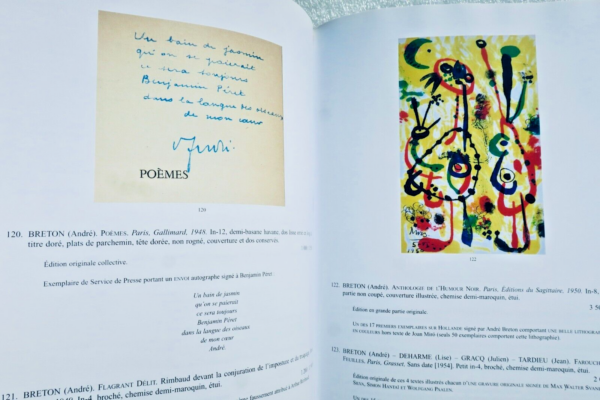 Un bain de jasmin
qu'on se paierait
ce sera toujours
Benjamin Péret
dans la langue des oiseaux
de mon cœur
André.
POÈMES
120
120. BRETON (André). POÈMES. Paris, Gallimard, 1948. In-12, demi-basane havane, dos lisse
titre doré, plats de parchemin, tête dorée, non rogné, couverture et dos conservés.
Édition originale collective.
Exemplaire de Service de Presse portant un ENVOI autographe signé à Benjamin Péret
Un bain de jasmin
qu'on se paierait
ce sera toujours
Benjamin Péret
dans la langue des oiseaux
de mon cœur
André.
121. BRETON (André). FLAGRANT DÉLIT. Rimbaud devant la conjuration de l'imposture et du
In-4, broché, chemise demi-maroquin, étui.
faussement attribué à Arthur
122
122. BRETON (André). ANTHOLOGIE DE L'HUMOUR NOIR. Paris, Éditions du Sagittaire, 1950. In-8,
partie non coupé, couverture illustrée, chemise demi-maroquin, étui.
Édition en grande partie originale.
UN DES 17 PREMIERS EXEMPLAIRES SUR HOLLANDE signé par André Breton comportant UNE BELLE LITHOGRAPHIE
EN COULEURS hors texte de Joan Miró (seuls 50 exemplaires comportent cette lithographie).
123. BRETON (André) – DEHARME (Lise) – GRACQ (Julien) – TARDIEU (Jean). FAROUCHE
FEUILLES. Paris, Grasset. Sans date [1954]. Petit in-4, broché, chemise demi-maroquin, étui.
Édition originale de ces 4 textes illustrés chacun d'UNE GRAVURE ORIGINALE SIGNÉE DE MAX WALTER SVANBERG
SILVA, SIMON HANTAÏ ET WOLFGANG PAALEN.